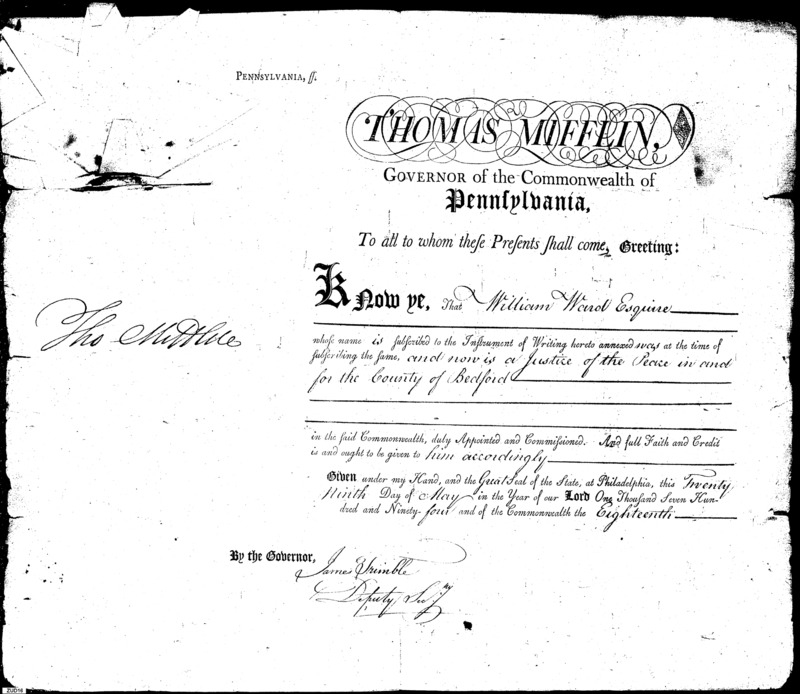 Pennsylvania, ſſ.
THOMAS MIFFLIN,
Governor of the Commonwealth of
Pennſylvania,
To all to whom theſe Preſents ſhall come, Greeting:
Know ye, That William Ward Esquire
whoſe name is ſubſcribed to the Inſtrument of Writing hereto annexed was at the time of
ſubſcribing the ſame, and now is a Justice of the Peace in and
for the County of Bedford
Tho Mifflin
in the ſaid Commonwealth, duly Appointed and Commiſſioned. And full Faith and Credit
is and ought to be given to him accordingly
Given under my Hand, and the Great Seal of the State, at Philadelphia, this Twenty
Ninth Day of May in the Year of our Lord One Thouſand Seven Hun-
dred and Ninety-four and of the Commonwealth the Eighteenth
By the Governor,
James Trimble
Deputy Secy
ZUD16